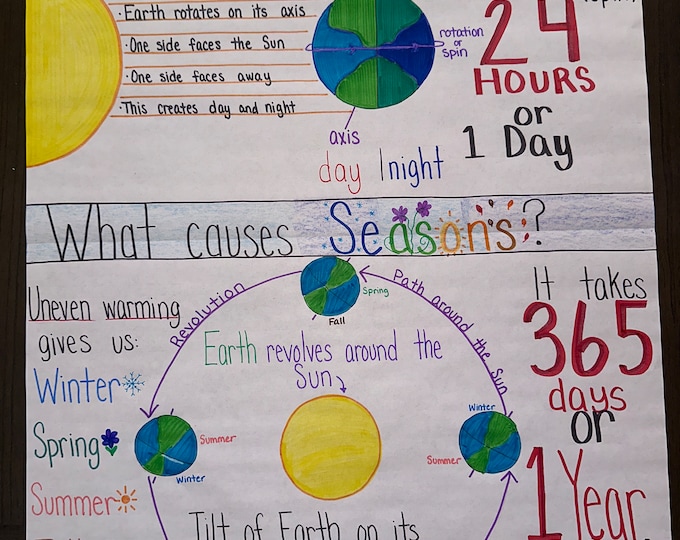 ·Earth rotates on its axis
·One side faces the Sun
·One side faces away
·This creates day and night
rotation
or
spin
axis
day | night
24
HOURS
or
1 Day
What causes Seasons?
Uneven warming
gives us:
Winter
Spring
Summer
Revolution
Path around the Sun
Spring
Fall
Earth revolves around the
Sun
Summer
Winter
Winter
Summer
Tilt of Earth on its
It takes
365
days
or
1 Year